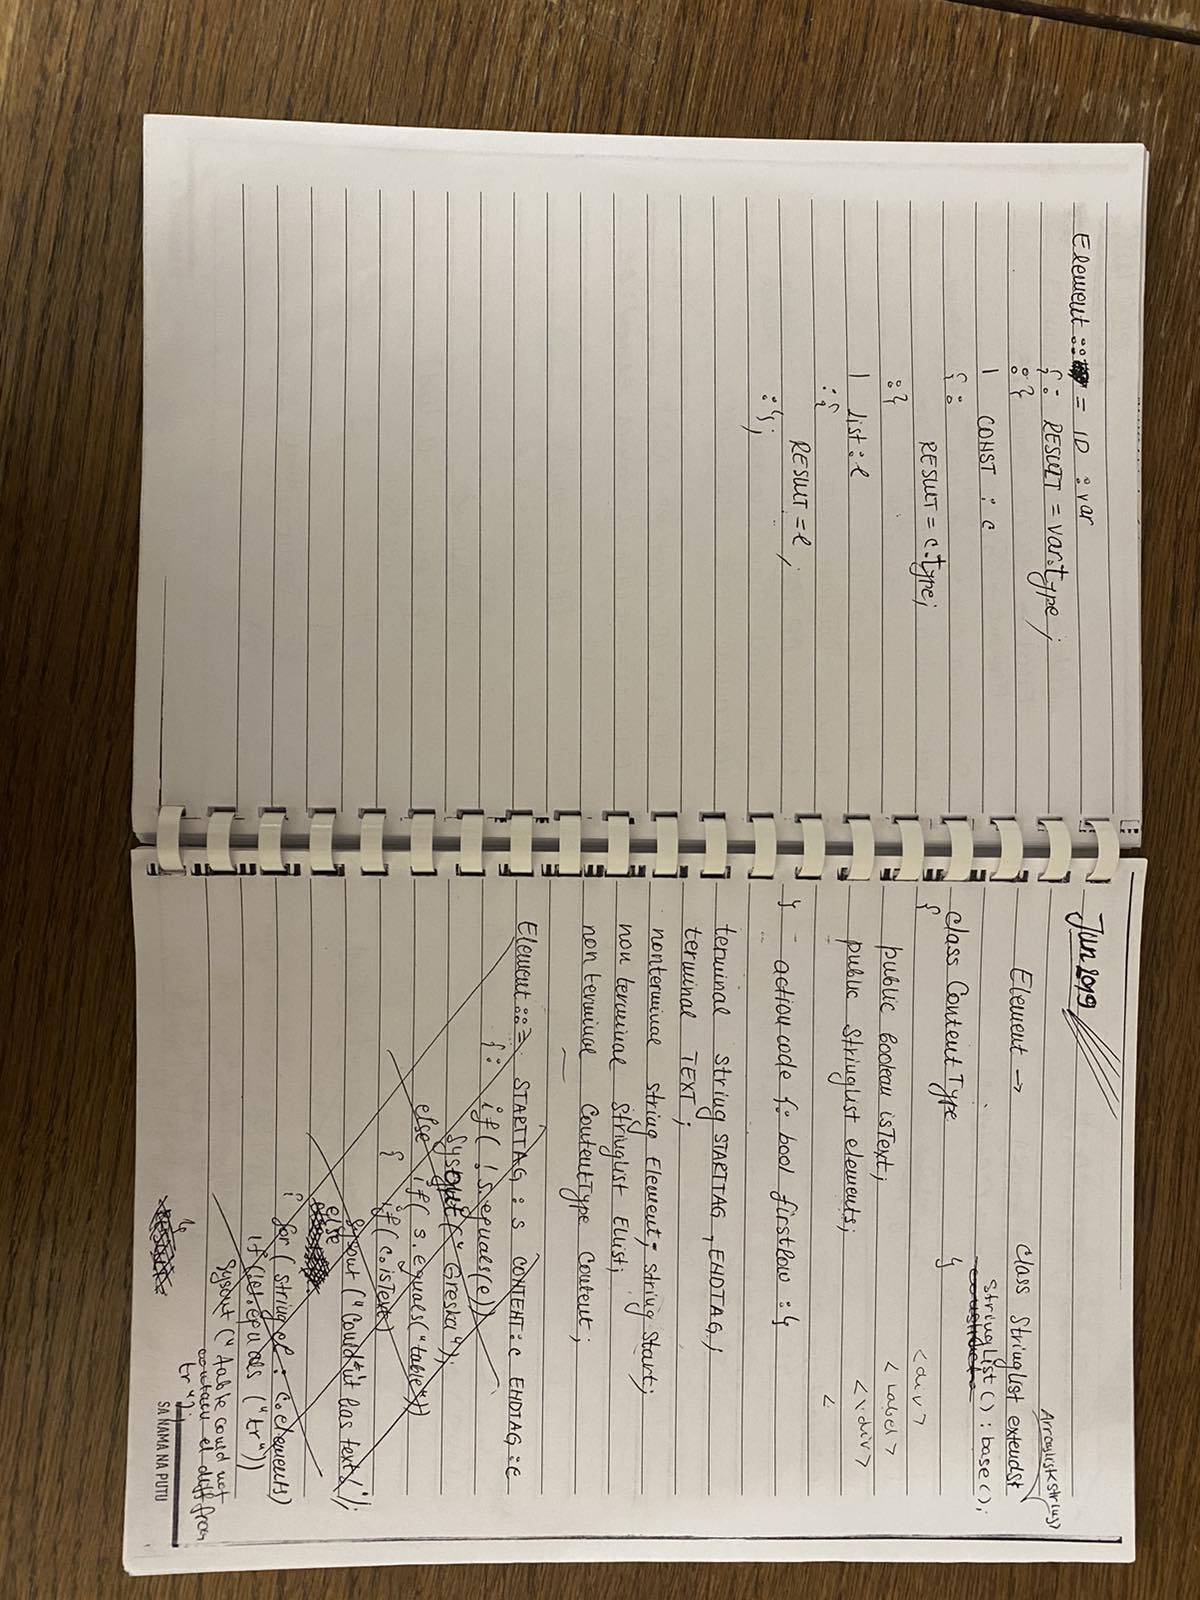 Element ::= ID : var
{: RESULT = var.type;
:}
| CONST : c
{:
RESULT = c.type;
:}
| list : l
{:
RESULT = l;
:};
Jun 2019
Element →
class Stringlist extends
ArrayList<String>
StringList() : base();
}
class Content Type
{
public boolean isText;
public Stringlist elements;
}
<div>
<label>
<
action code {: bool firstRow :}
terminal String STARTTAG, ENDTAG;
terminal TEXT;
nonterminal string Element; string Start;
non terminal Stringlist Ellist;
non terminal ContentType Content;
Element ::= STARTTAG : s CONTENT : c ENDTAG : e
{: if( ! s.equals(e))
Sysout(" Greska");
else if( s.equals("table"))
{ if( c.isText)
Sysout ("Couldn't has text!");
else
{ for ( string el : c.elements)
if(!el.equals ("tr"))
Sysout ("table could not
contain el diff from
tr");
}
SA NAMA NA PUTU